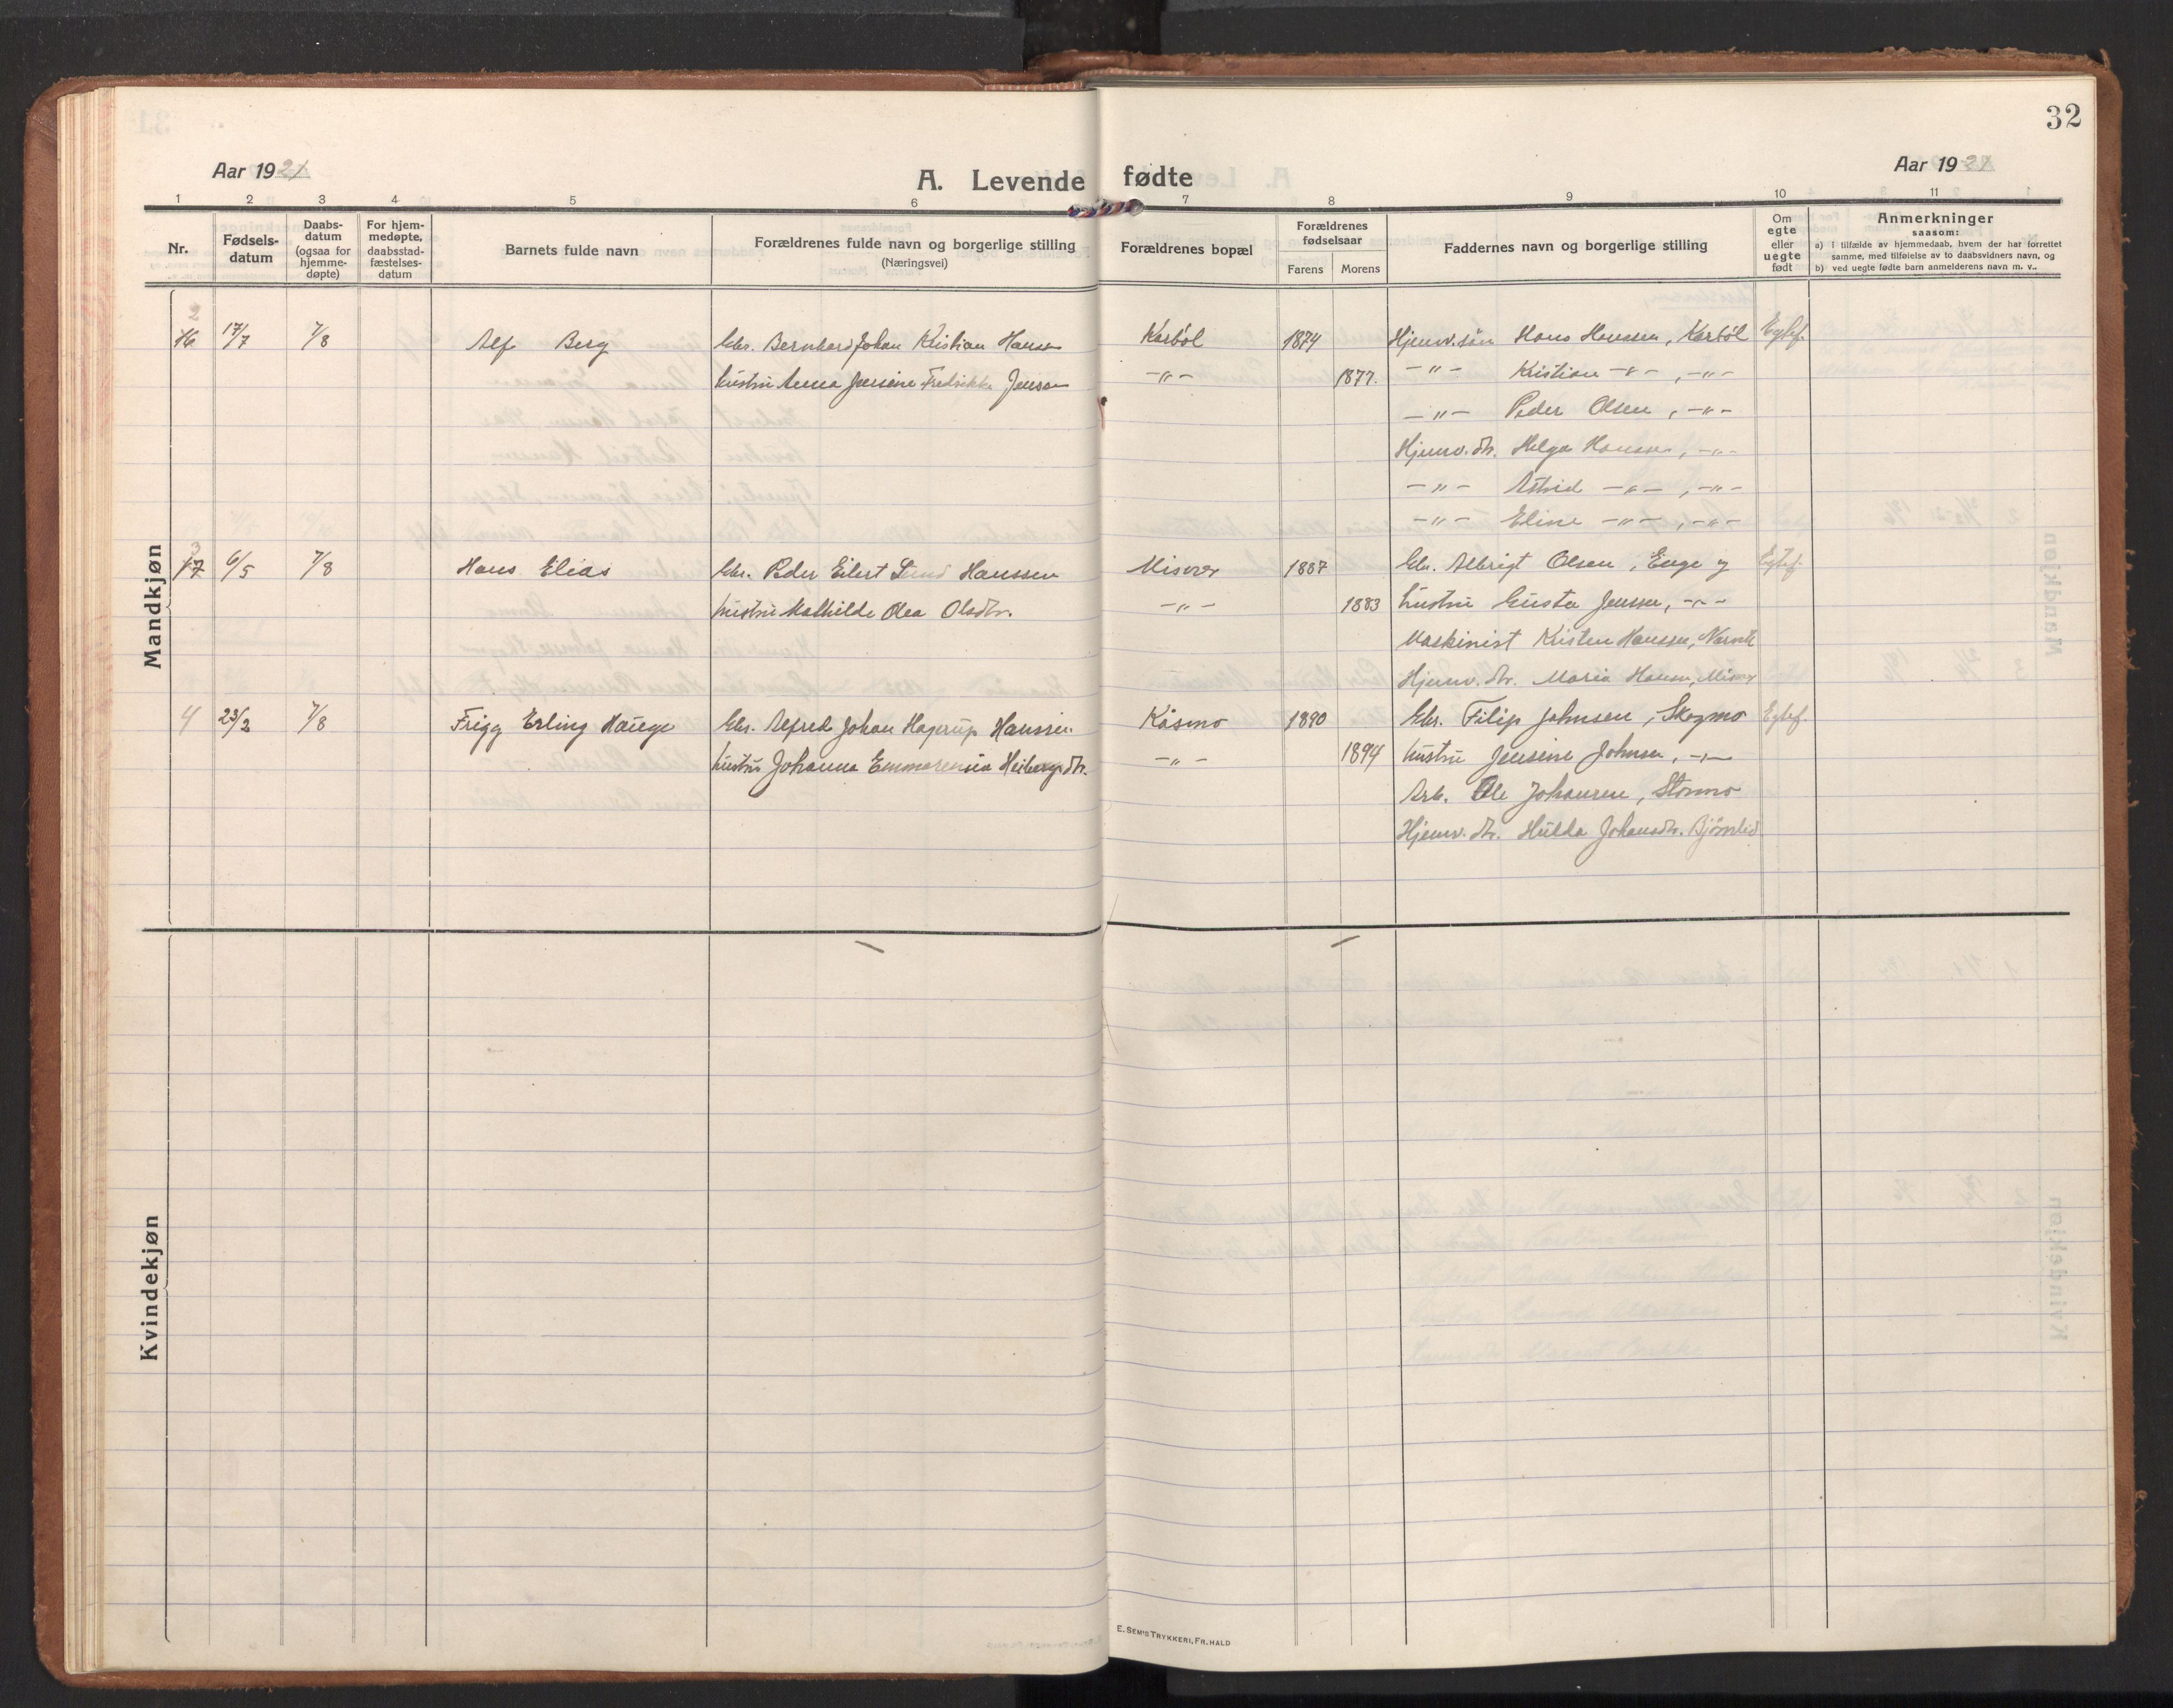 32
Aar 1921
A. Levende fødte
Aar 1921
1 2 3 4 5 6 7 8 9 10 11
Nr.
Fødsels-datum
Daabs-datum (ogsaa for hjemme-døpte)
For hjem-medøpte, daabsstad-fæstelses-datum
Barnets fulde navn
Forældrenes fulde navn og borgerlige stilling
(Næringsvei)
Forældrenes bopæl
Forældrenes fødselsaar
Farens Morens
Faddernes navn og borgerlige stilling
Om egte eller uegte født
Anmerkninger
saasom:
a) i tilfælde av hjemmedaab, hvem der har forrettet
samme, med tilføielse av to daabsvidners navn, og
b) ved uegte fødte barn anmelderens navn m. v..
Mandkjøn
2
16 17/7 7/8 Alf Berg Gbr. Bernhard Johan Kristian Hansen Karbøl 1874 Hjemv. søn Hans Hanssen, Karbøl Egtef.
hustru Anna Jensine Fredrikke Jensen -"- 1877. -"- Kristian -"-, -"-
-"- Peder Olsen, -"-
Hjemv. dtr. Helga Hanssen, -"-
-"- Astrid -"-, -"-
-"- Eline -"-, -"-
3
17 6/5 7/8 Hans Elias Gbr. Peder Eilert Lund Hanssen Misvær 1887 Gbr. Albrigt Olsen, Enge og Egtef.
hustru Mathilde Olea Olsdtr. -"- 1883 hustru Gusta Jensen, -"-
Maskinist Kristen Hanssen, Narvik
Hjemv. dtr. Maria Hansen, Misvær
4 23/2 7/8 Frigg Erling Hauge Gbr. Alfred Johan Hagerup Hanssen Kåsmo 1890 Gbr. Filip Johnsen, Skogmo Egtef.
hustru Johanna Emmerensia Heibergsdtr. -"- 1894 hustru Jensine Johnsen, -"-
Arb. Ole Johansen, Stormo
Hjemv. dtr. Hulda Johansdtr. Bjørnlid
Kvindekjøn
E. SEM'S TRYKKERI, FR.HALD